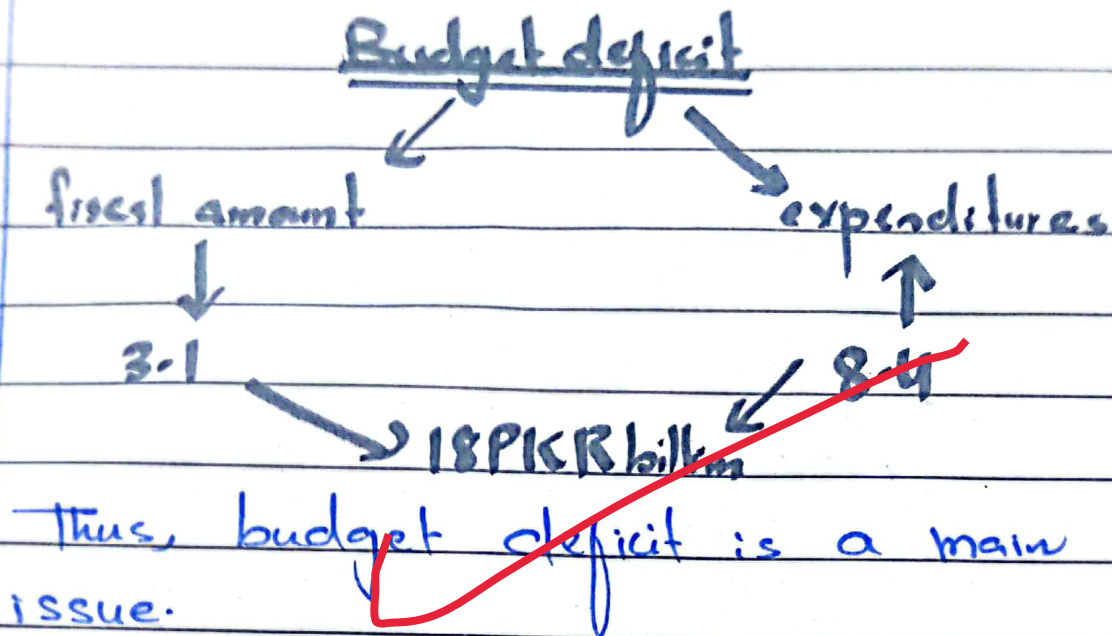 Budget deficit
fiscal amount expenditures
3.1 8.4
18PKR billion
Thus, budget deficit is a main
issue.